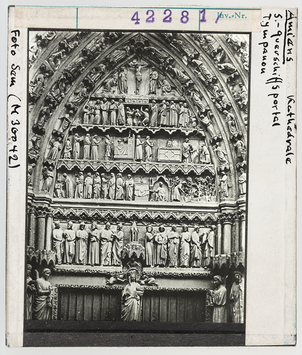 42281, Inv.-Nr.
Amiens Kathedrale
S.-querschiffsportal
Tympanon
Foto Sem (M 36042)